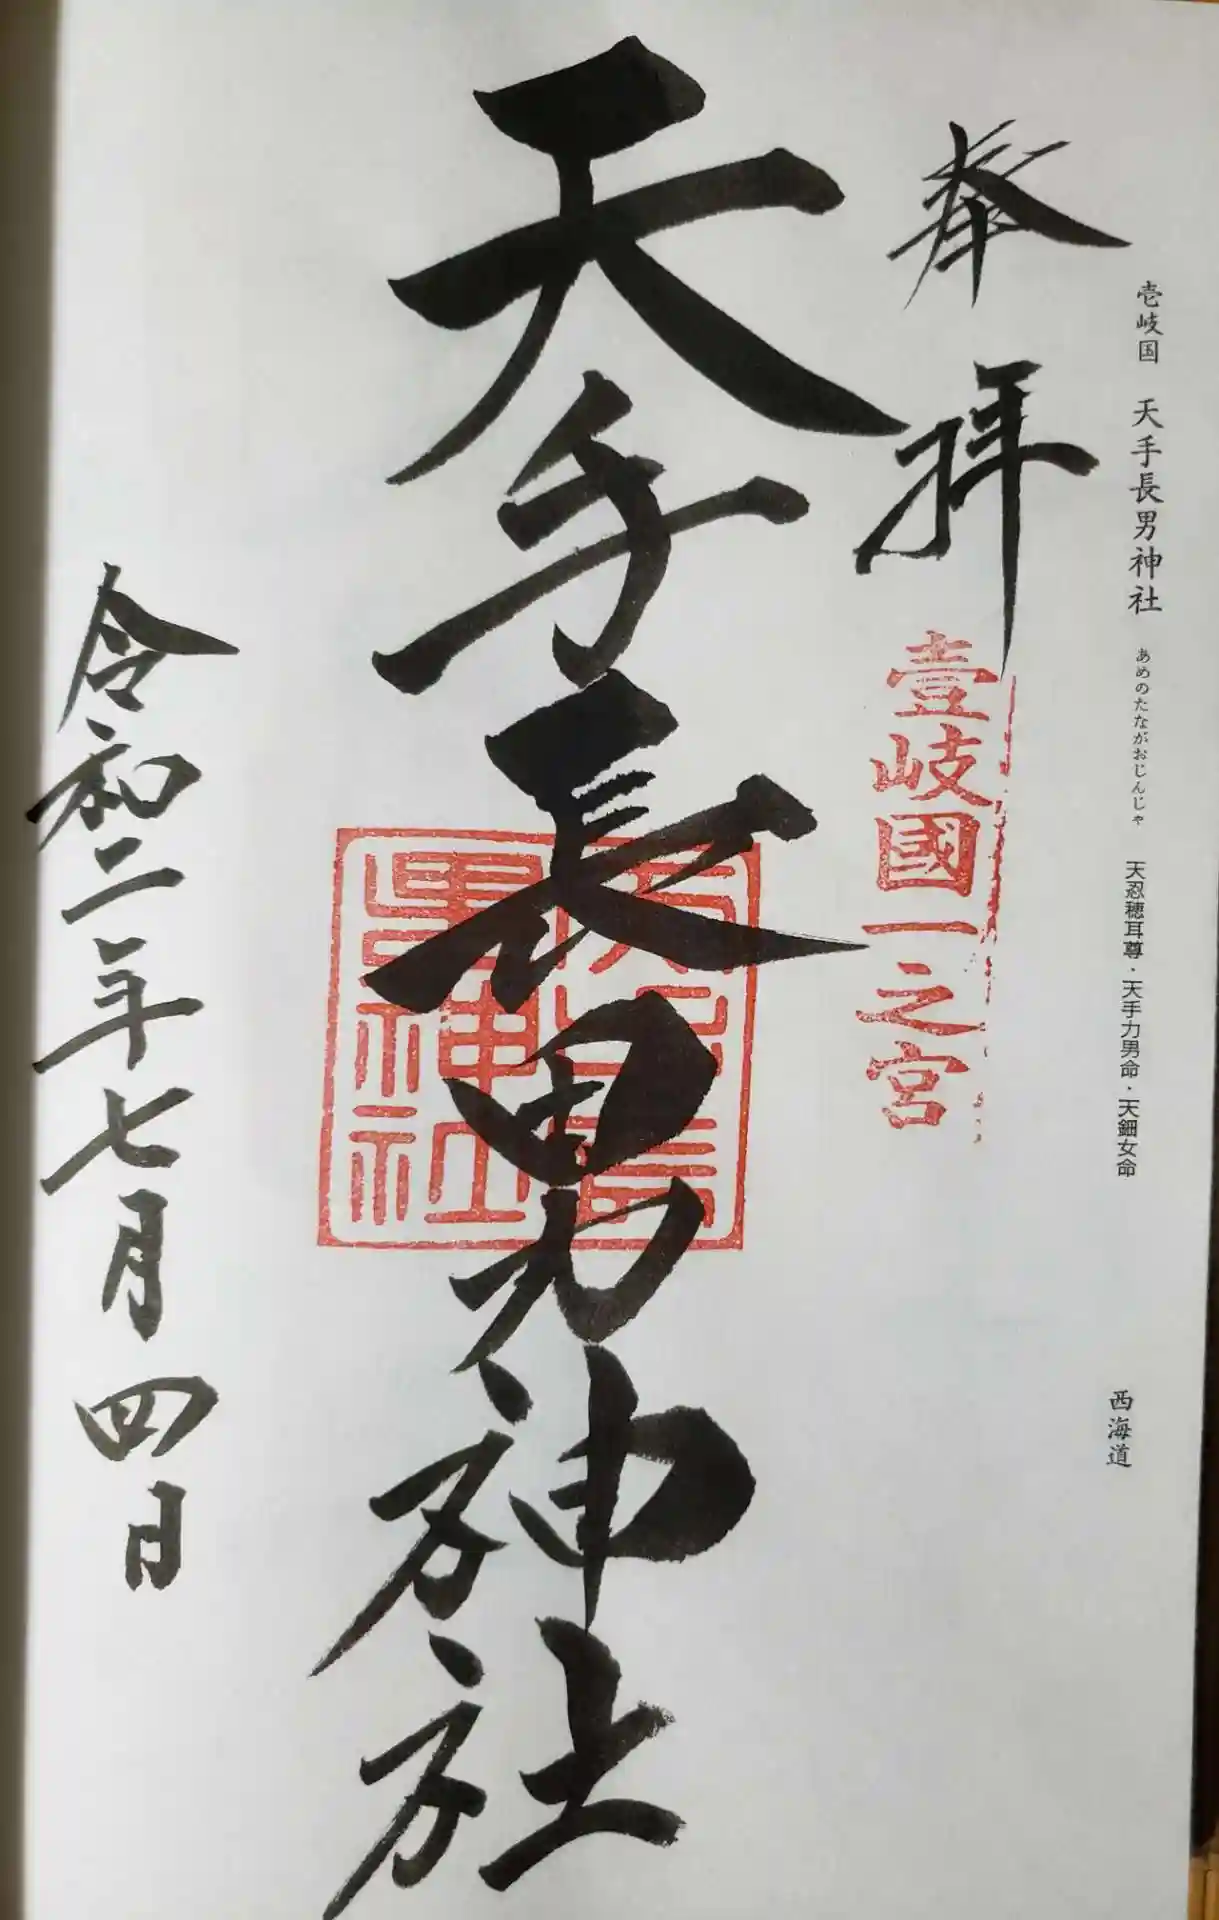 壱岐国 天手長男神社 あめのたながおじんじゃ 天忍穂耳尊・天手力男命・天鈿女命 西海道
奉拝
壹岐國一之宮
天手長男神社
天手長
男神社
令和二年七月四日